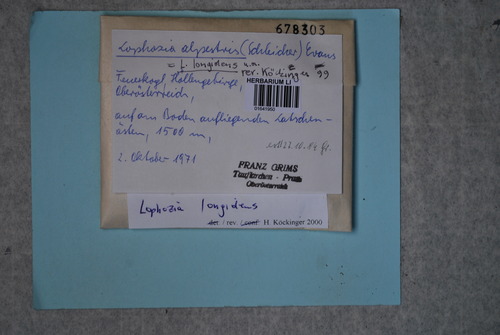 678303
Lophozia alpestris (Schleicher) Evans
= f. longidens
rev. Köckinger 99
Feuerkogl, Höllengebirge,
Oberösterreich,
HERBARIUM LI
auf am Boden aufliegenden Latschen-
ästen, 1500 m,
2. Oktober 1971
FRANZ GRIMS
Taufkirchen - Pram
Oberösterreich
Lophozia longidens
det. / rev. / conf. H. Köckinger 2000